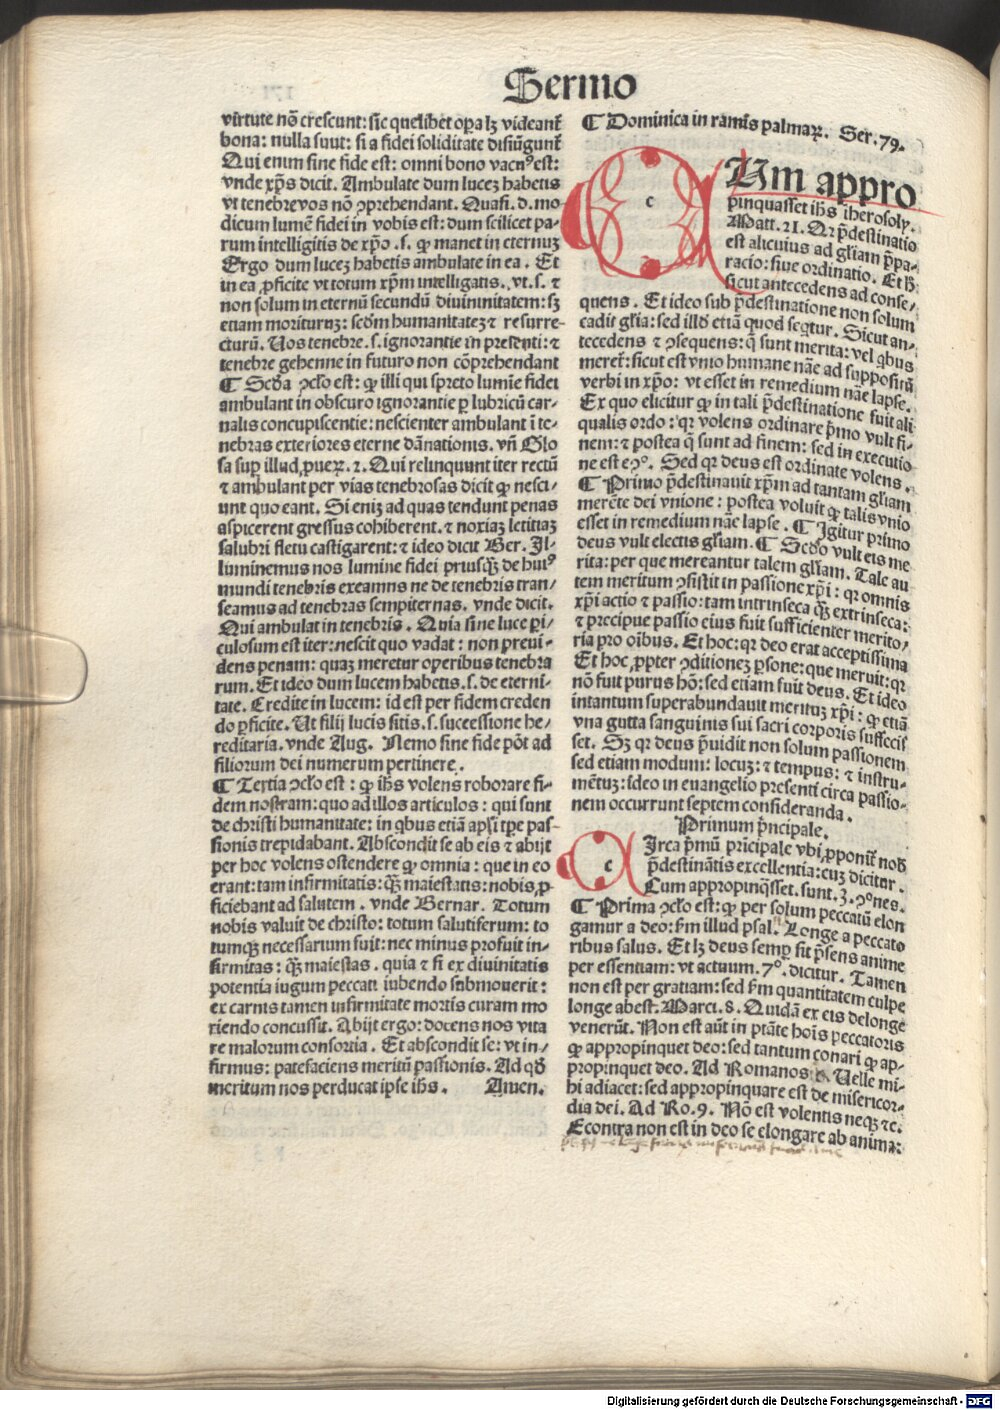 Sermo
virtute nõ crescunt: sic quelibet oꝑa lꝫ videant᷑
bona: nulla suut: si a fidei soliditate disiũgunt᷑
Qui enim sine fide est: omni bono vacuꝰ est:
vnde xp̃s dicit. Ambulate dum luceꝫ habetis
vt tenebre vos nõ ꝯprehendant. Quasi. d. mo-
dicum lumẽ fidei in vobis est: dum scilicet pa-
rum intelligitis de xp̃o .s. ꝙ manet in eternuꝫ
Ergo dum luceꝫ habetis ambulate in ea. Et
in ea ꝓficite vt totum xp̃m intelligatis. vt. s. ⁊
non solum in eternũ secundũ diuininitatem: sꝫ
etiam moriturnꝫ: scđm humanitateꝫ ⁊ resurre-
cturũ. Uos tenebre. s. ignorantie in presenti: ⁊
tenebre gehenne in futuro non cõprehendant
¶ Scđa ꝯclo est: ꝙ illi qui spreto lumĩe fidei
ambulant in obscuro ignorantie ꝑ lubricũ car-
nalis concupiscentie: nescienter ambulant ĩ te-
nebras exteriores eterne dãnationis. vñ Glo
sa suꝑ illud ꝓueꝝ. 2. Qui relinquunt iter rectũ
⁊ ambulant per vias tenebrosas dicit ꝙ nesci-
unt quo eant. Si eniꝫ ad quas tendunt penas
aspicerent gressus cohiberent. ⁊ noxiaꝫ letitiaꝫ
salubri fletu castigarent: ⁊ ideo dicit Ber. Jl-
luminemus nos lumine fidei priusꝗ̃ de huiꝰ
mundi tenebris exeamns ne de tenebris tran-
seamus ad tenebras sempiternas. vnde dicit.
Qui ambulat in tenebris. Quia sine luce ꝑi-
culosum est iter: nescit quo vadat: non preui-
dens penam: quaꝫ meretur operibus tenebra
rum. Et ideo dum lucem habetis. s. de eterni-
tate. Credite in lucem: id est per fidem creden
do ꝓficite. Ut filij lucis sitis. s. suceessione he-
reditaria. vnde Aug. Nemo sine fide põt ad
filiorum dei numerum pertinere.
¶ Tertia ꝯclo est: ꝙ ih̃s volens roborare fi-
dem nostram: quo ad illos articulos: qui sunt
de christi humanitate: in ꝗbus etiã apl̃i tꝑe pas-
sionis trepidabant. Abscondit se ab eis ⁊ abijt
per hoc volens ostendere ꝙ omnia: que in eo
erant: tam infirmitatis: ꝗ̃ꝫ maiestatis: nobis ꝓ
ficiebant ad salutem. vnde Bernar. Totum
nobis valuit de christo: totum salutiferum: to
tumqꝫ necessarium fuit: nec minus profuit in-
firmitas: ꝗ̃ꝫ maiestas. quia ⁊ si ex diuinitatis
potentia iugum peccati iubendo submouerit:
ex carnis tamen infirmitate mortis curam mo
riendo concussit. Abijt ergo: docens nos vita
re malorum consortia. Et abscondit se: vt in-
firmus: patefaciens meritũ passionis. Ad qđ
meritum nos perducat ipse ih̃s. Amen.
¶ Dominica in ramis palmaꝝ. Ser. 79.
c Um appro
pinquasset ih̃s iherosoly.
Matt. 21. Qꝛ p̃destinatio
est alicuius ad gl̃iam p̃pa-
ratio: siue ordinatio. Et hꝫ
sicut antecedens ad conse-
quens. Et ideo sub p̃destinatione non solum
cadit gl̃ia: sed illđ etiã quod seqtur. Sicut an-
tecedens ⁊ ꝯsequens: q̃ sunt merita: vel ꝗbus
meret᷑: sicut est vnio humane nãe ad suppositũ
verbi in xp̃o: vt esset in remedium nãe lapse.
Ex quo elicitur ꝙ in tali p̃destinatione fuit ali
qualis ordo: qꝛ volens ordinare p̃mo vult fi-
nem: ⁊ postea q̃ sunt ad finem: sed in executio
ne est eꝯº. Sed qꝛ deus est ordinate volens.
¶ Primo p̃destinauit xp̃m ad tantam gl̃iam
merẽte dei vnione: postea voluit ꝙ talis vnio
esset in remedium nãe lapse. ¶ Jgitur primo
deus vult electis gl̃iam. ¶ Scđo vult eis me
rita: per que mereantur talem gl̃iam. Tale au
tem meritum ꝯsistit in passione xp̃i: qꝛ omnis
xp̃i actio ⁊ passio: tam intrinseca ꝗ̃ꝫ extrinseca:
⁊ precipue passio eius fuit sufficienter merito-
ria pro oĩbus. Et hoc: qꝛ deo erat acceptissima
Et hoc ꝓpter ꝯditioneꝫ ꝑsone: que meruit: qꝛ
nõ fuit purus hõ: sed etiam fuit deus. Et ideo
intantum superabundauit merituꝫ xp̃i: ꝙ etiã
vna gutta sanguinis sui sacri corporis suffecis
set. Sꝫ qꝛ deus p̃uidit non solum passionem
sed etiam modum: locuꝫ: ⁊ tempus: ⁊ instru-
mẽtuꝫ: ideo in euangelio presenti circa passio-
nem occurrunt septem consideranda.
Primum p̃ncipale.
c Jrca p̃mũ prĩcipale vbi ꝓponit᷑ nob̃
p̃destinãtis excellentia: cuꝫ dicitur.
Cum appropinq̃sset. sunt. 3. ꝯnes.
¶ Prima ꝯclo est: ꝙ per solum peccatũ elon
gamur a deo: ẜm illud psal. Longe a peccato
ribus salus. Et lꝫ deus semꝑ sit p̃sens anime
per essentiam: vt actuum. 7º. dicitur. Tamen
non est per gratiam: sed ẜm quantitatem culpe
longe abest. Marci. 8. Quidã ex eis de longe
venerũt. Non est aũt in ptãte hoĩs peccatoris
ꝙ appropinquet deo: sed tantum conari ꝙ ap-
propinquet deo. Ad Romanos Uelle mi-
hi adiacet: sed appropinquare est de misericor-
dia dei. Ad Ro. 9. Nõ est volentis neqꝫ ⁊c.
Econtra non est in deo se elongare ab anima:
Digitalisierung gefördert durch die Deutsche Forschungsgemeinschaft - DFG